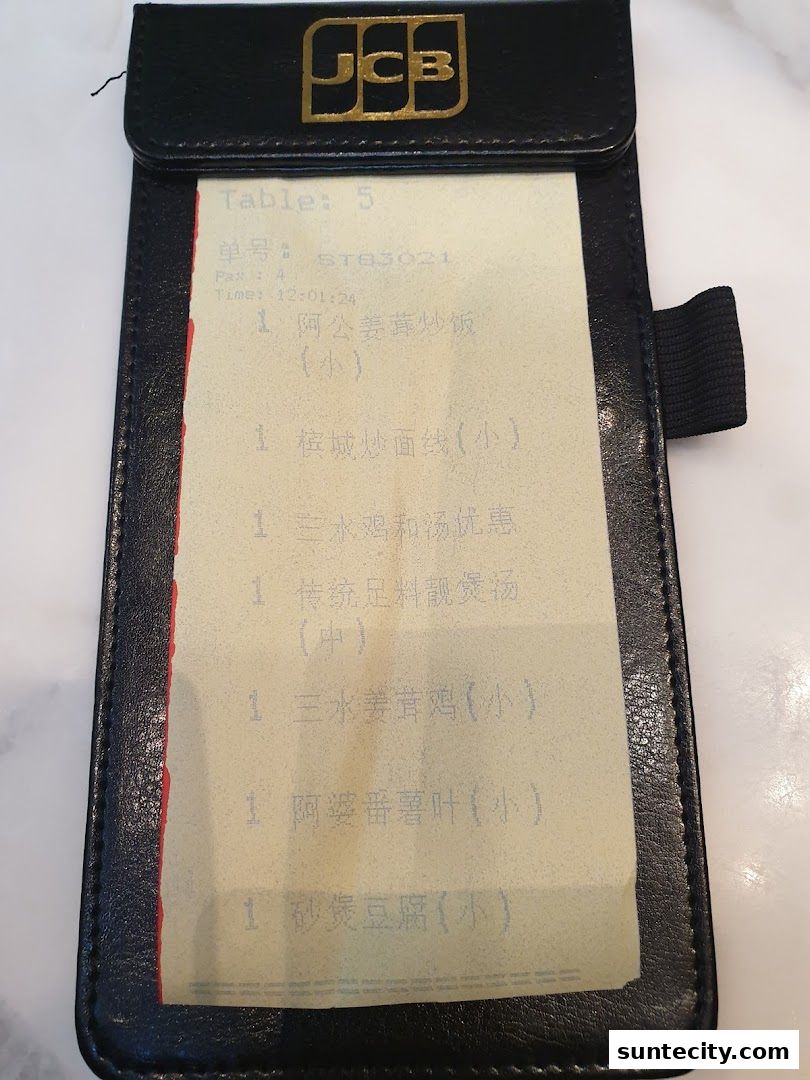 JCB
Table: 5
单号: ST83021
Pax : 4
Time: 12:01:24
1 阿公姜茸炒饭
(小)
1 槟城炒面线(小)
1 三水鸡和汤优惠
1 传统足料靓煲汤
(中)
1 三水姜茸鸡(小)
1 阿婆番薯叶(小)
1 砂煲豆腐(小)
suntecity.com